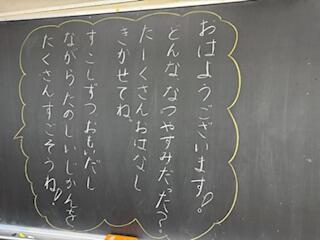 おはようございます!。
どんな なつやすみだった?
たーくさんおはなし
きかせてね。
すこしずつおもいだし
ながらたのしいじかんを
たくさんすごそうね!